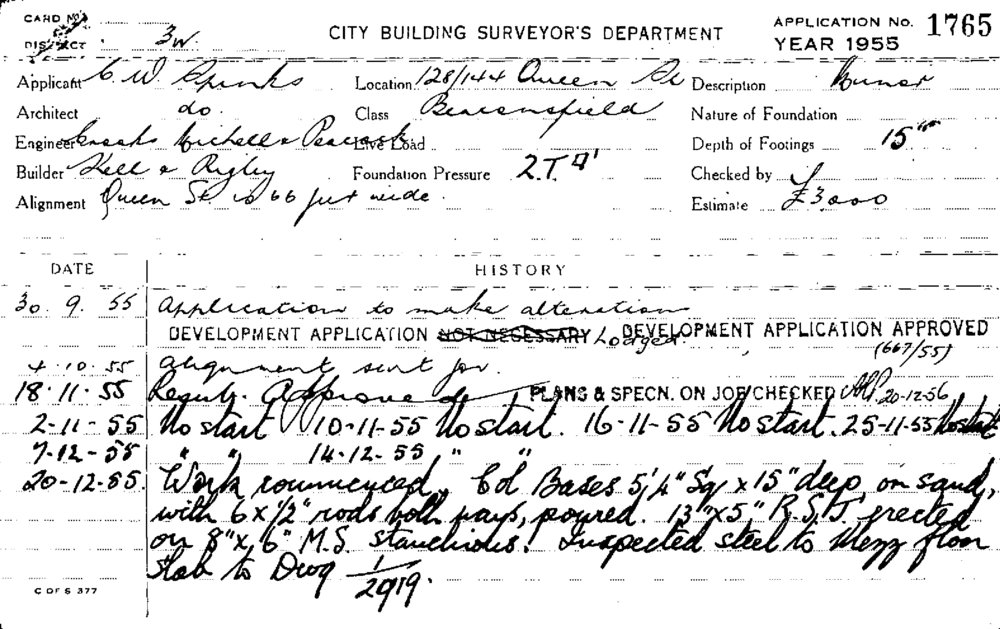 CARD No. 1
DISTRICT 3W. CITY BUILDING SURVEYOR'S DEPARTMENT APPLICATION No. 1765
YEAR 1955
Applicant C. W. Spinks Location 128/144 Queen St Description
Architect do. Class Beaconsfield Nature of Foundation
Engineer Michell & Peacock Live Load Depth of Footings 15"
Builder Kell & Rigby Foundation Pressure 2.T. Checked by
Alignment Queen St. is 66 feet wide. Estimate £3000
DATE HISTORY
30. 9. 55 Application to make alterations
DEVELOPMENT APPLICATION NOT NECESSARY Lodged. DEVELOPMENT APPLICATION APPROVED
(667/55)
4.10.55 Alignment sent for.
18.11.55 Approve PLANS & SPECN. ON JOB/CHECKED 20-12-56
2-11-55 No start 10-11-55 No start. 16-11-55 No start. 25-11-55 No start
7-12-55 " " 14-12-55 " "
20-12-55. Work commenced, Col Bases 5'4" Sq x 15" deep on sand,
with 6 x 1/2" rods both ways, poured. 13"x5" R.S.J erected
on 8"x 6" M.S. stanchions. Inspected steel to Mezz floor
slab to Dwg 1/2919.
C OF S 377